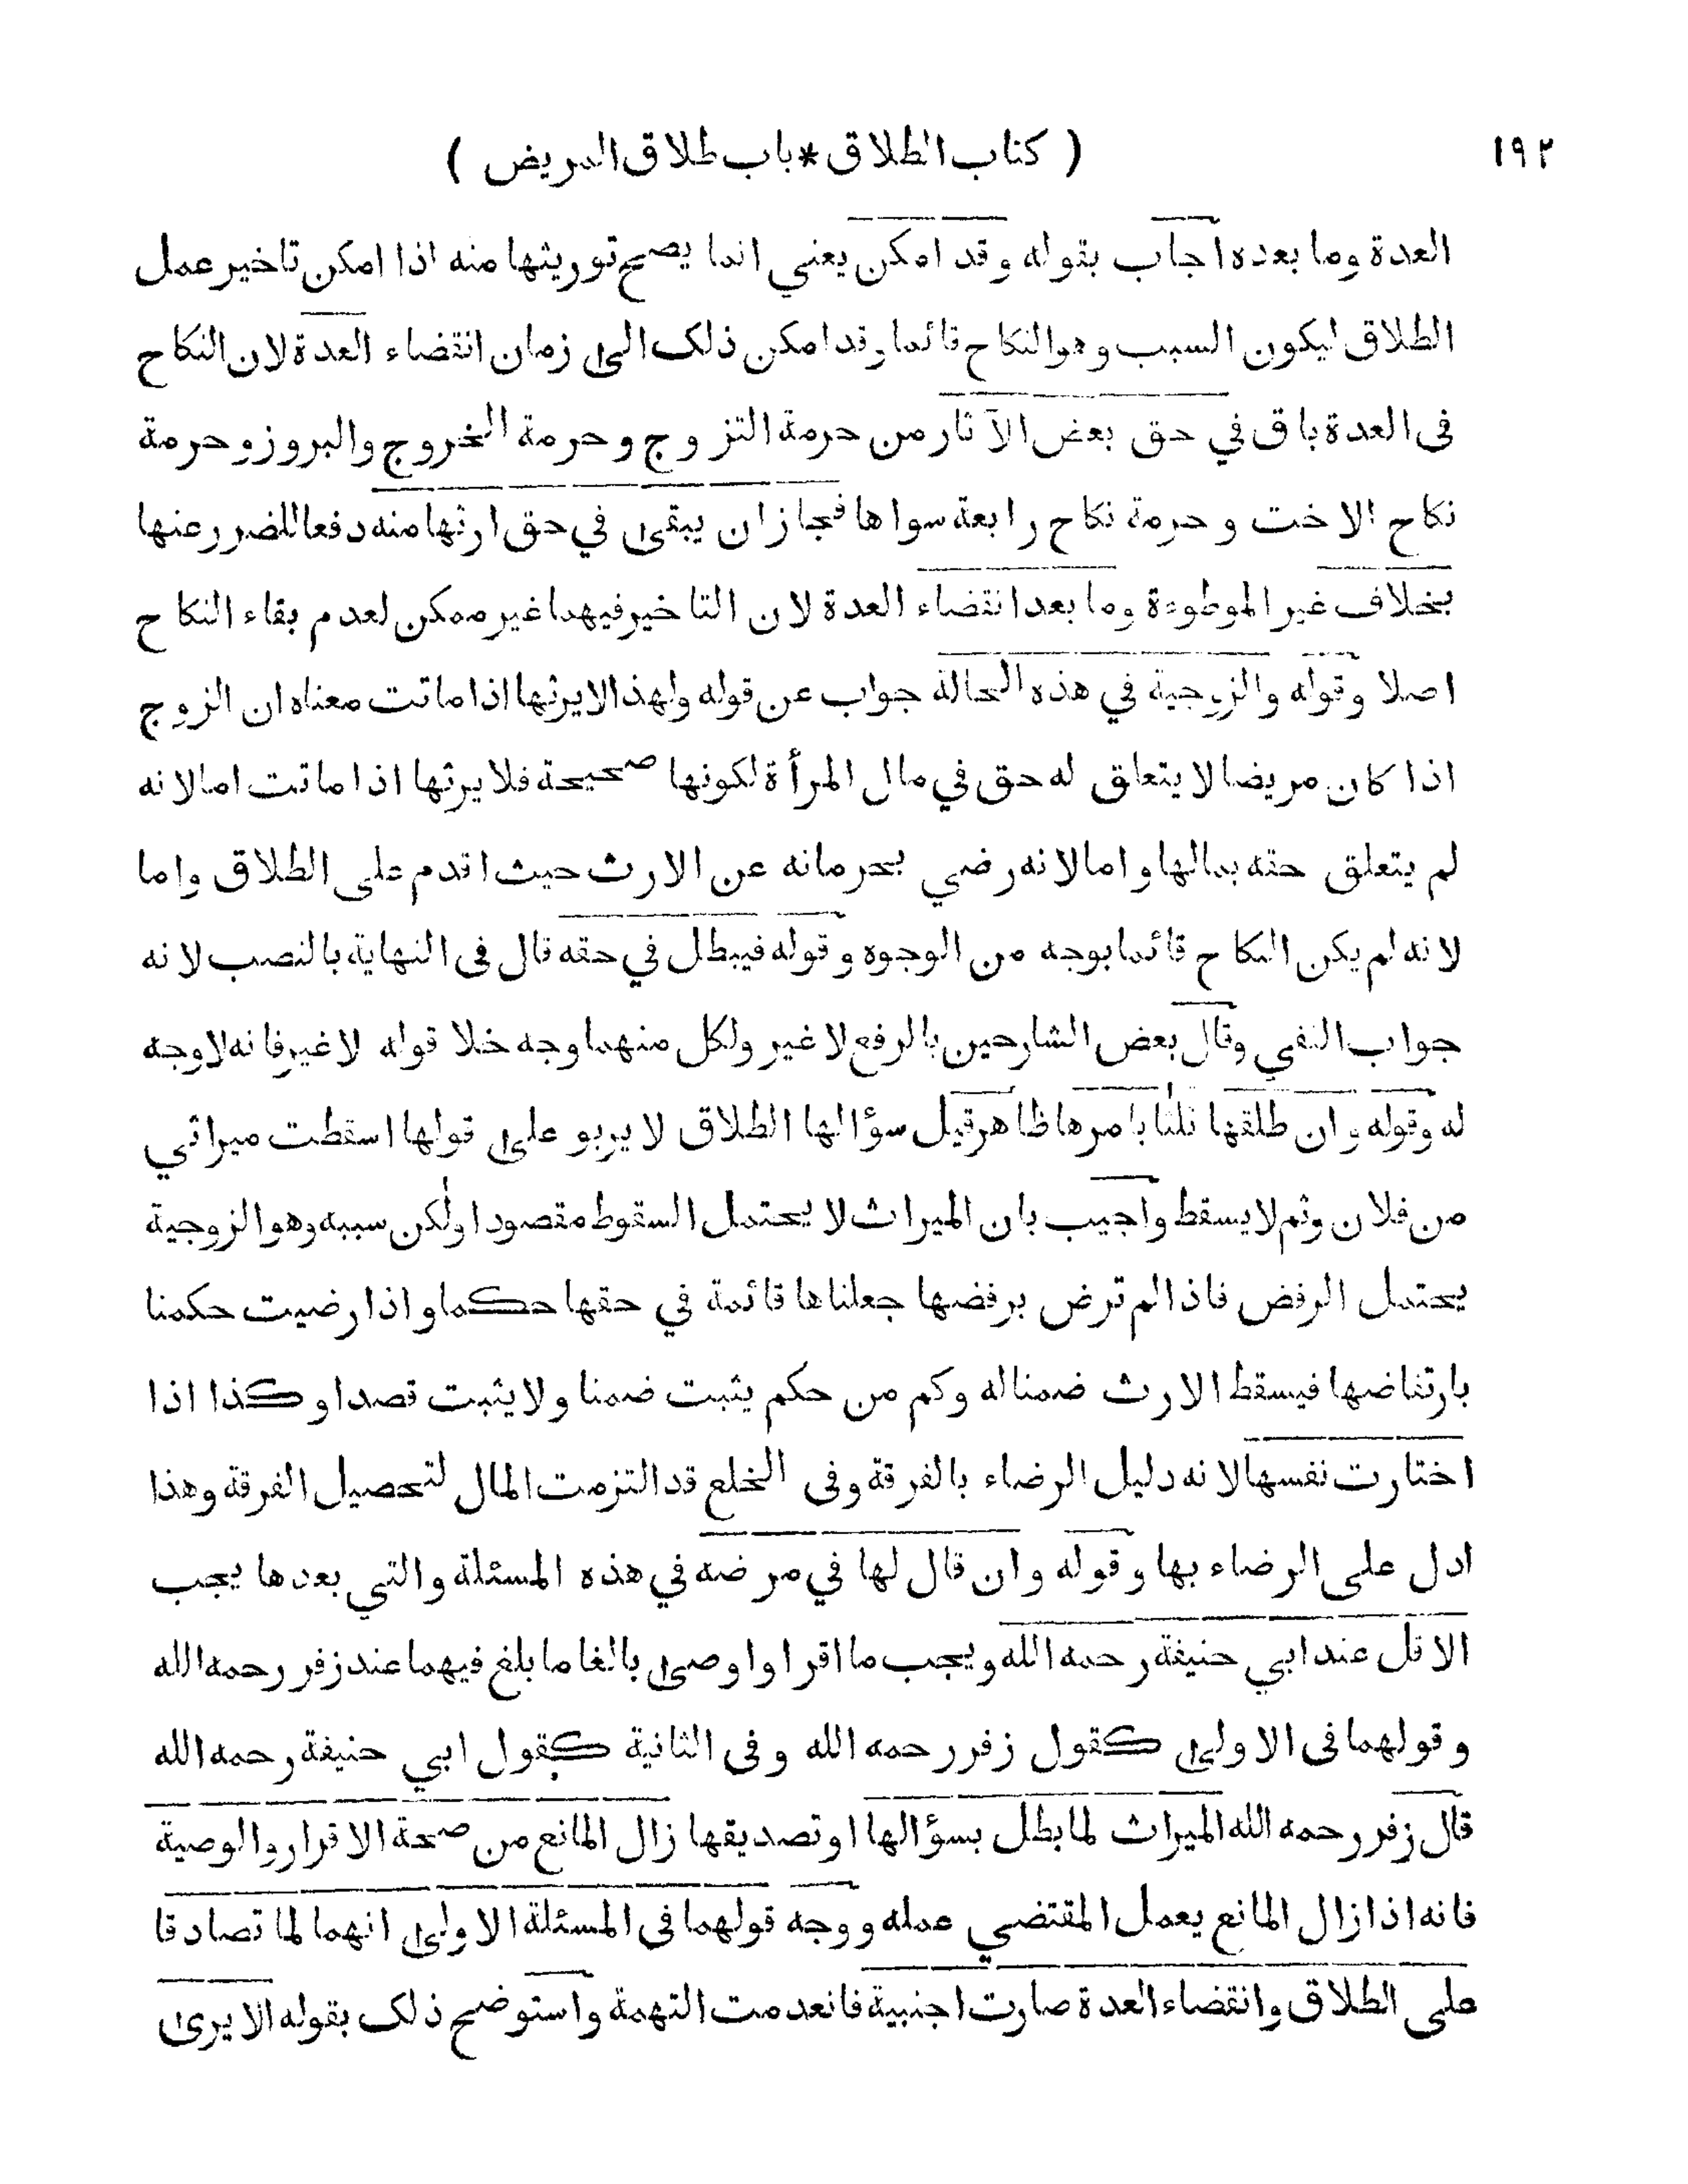 ١٩٢
( كتاب الطلاق * باب طلاق المريض )
العدة وما بعده اجاب بقوله وقد امكن يعني انما يصح توريثها منه اذا امكن تاخير عمل
الطلاق ليكون السبب وهو النكاح قائما وقد امكن ذلك الى زمان انقضاء العدة لان النكاح
فى العدة باق في حق بعض الآثار من حرمة التزوج وحرمة الخروج والبروز وحرمة
نكاح الاخت وحرمة نكاح رابعة سواها فجاز ان يبقى في حق ارثها منه دفعا للضرر عنها
بخلاف غير الموطوءة وما بعد انقضاء العدة لان التاخير فيهما غير ممكن لعدم بقاء النكاح
اصلا وقوله والزوجية في هذه الحالة جواب عن قوله ولهذا لا يرثها اذا ماتت معناه ان الزوج
اذا كان مريضا لا يتعلق له حق في مال المرأة لكونها صحيحة فلا يرثها اذا ماتت اما لانه
لم يتعلق حقه بمالها واما لانه رضي بحرمانه عن الارث حيث اقدم على الطلاق واما
لانه لم يكن النكاح قائما بوجه من الوجوه وقوله فيبطل في حقه قال فى النهاية بالنصب لانه
جواب النفي وقال بعض الشارحين بالرفع لا غير ولكل منهما وجه خلا قوله لا غير فانه لا وجه
له وقوله وان طلقها ثلثا بامرها ظاهر قيل سؤالها الطلاق لا يربو على قولها اسقطت ميراثي
من فلان وثم لا يسقط واجيب بان الميراث لا يحتمل السقوط مقصودا ولكن سببه وهو الزوجية
يحتمل الرفض فاذا لم ترض برفضها جعلناها قائمة في حقها حكما واذا رضيت حكمنا
بارتفاضها فيسقط الارث ضمنا له وكم من حكم يثبت ضمنا ولا يثبت قصدا وكذا اذا
اختارت نفسها لانه دليل الرضاء بالفرقة وفى الخلع قد التزمت المال لتحصيل الفرقة وهذا
ادل على الرضاء بها وقوله وان قال لها في مرضه في هذه المسئلة والتي بعدها يجب
الاقل عند ابي حنيفة رحمه الله ويجب ما اقر او اوصى بالغا ما بلغ فيهما عند زفر رحمه الله
وقولهما فى الاولى كقول زفر رحمه الله وفى الثانية كقول ابي حنيفة رحمه الله
قال زفر رحمه الله الميراث لما بطل بسؤالها او تصديقها زال المانع من صحة الاقرار والوصية
فانه اذا زال المانع يعمل المقتضي عمله ووجه قولهما فى المسئلة الاولى انهما لما تصادقا
على الطلاق وانقضاء العدة صارت اجنبية فانعدمت التهمة واستوضح ذلك بقوله الا يرى